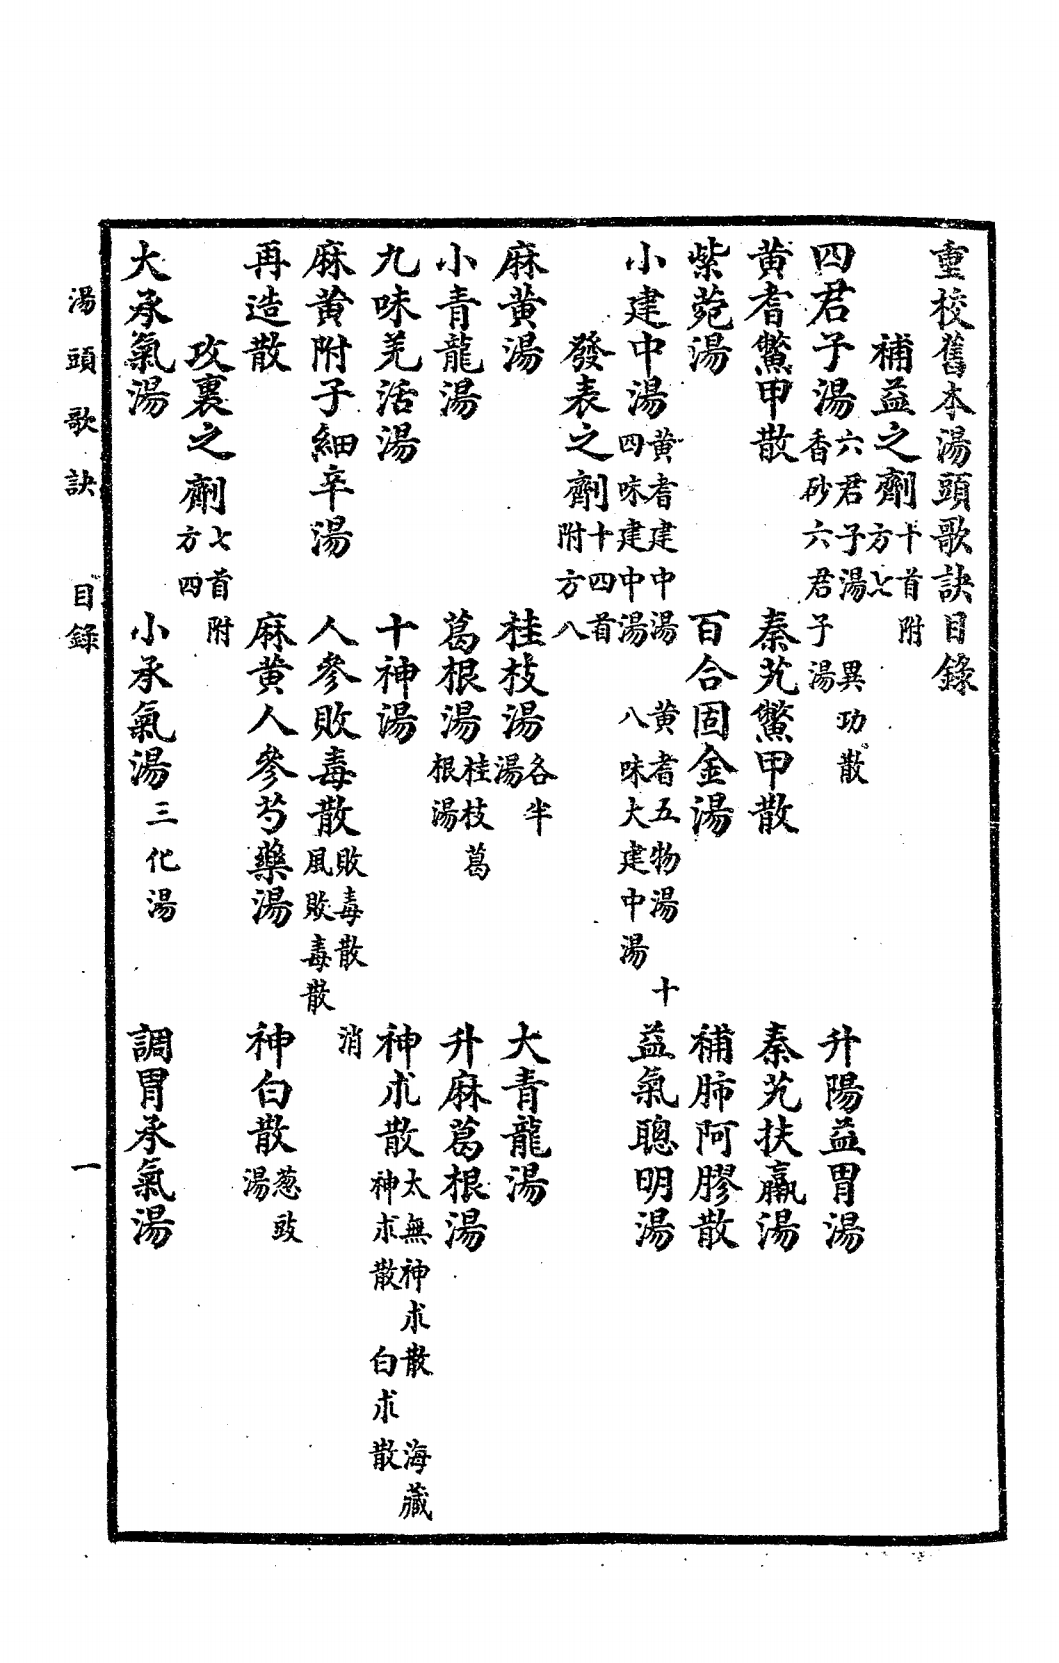 重校舊本湯頭歌訣目錄
補益之劑十首附方七
四君子湯六君子湯 異功散 香砂六君子湯 升陽益胃湯
黄耆鱉甲散 秦艽鱉甲散 秦艽扶羸湯
紫菀湯 百合固金湯 補肺阿膠散
小建中湯黄耆建中湯 黄耆五物湯 十四味建中湯 八味大建中湯 益氣聰明湯
發表之劑十四首附方八
麻黄湯 桂枝湯各半湯 大青龍湯
小青龍湯 葛根湯桂枝葛根湯 升麻葛根湯
九味羌活湯 十神湯 神朮散太無神朮散 海藏神朮散 白朮散
麻黄附子細辛湯 人參敗毒散敗毒散 消風敗毒散
再造散 麻黄人參芍藥湯 神白散葱豉湯
攻裏之劑七首附方四
大承氣湯 小承氣湯三化湯 調胃承氣湯
湯頭歌訣 目錄 一